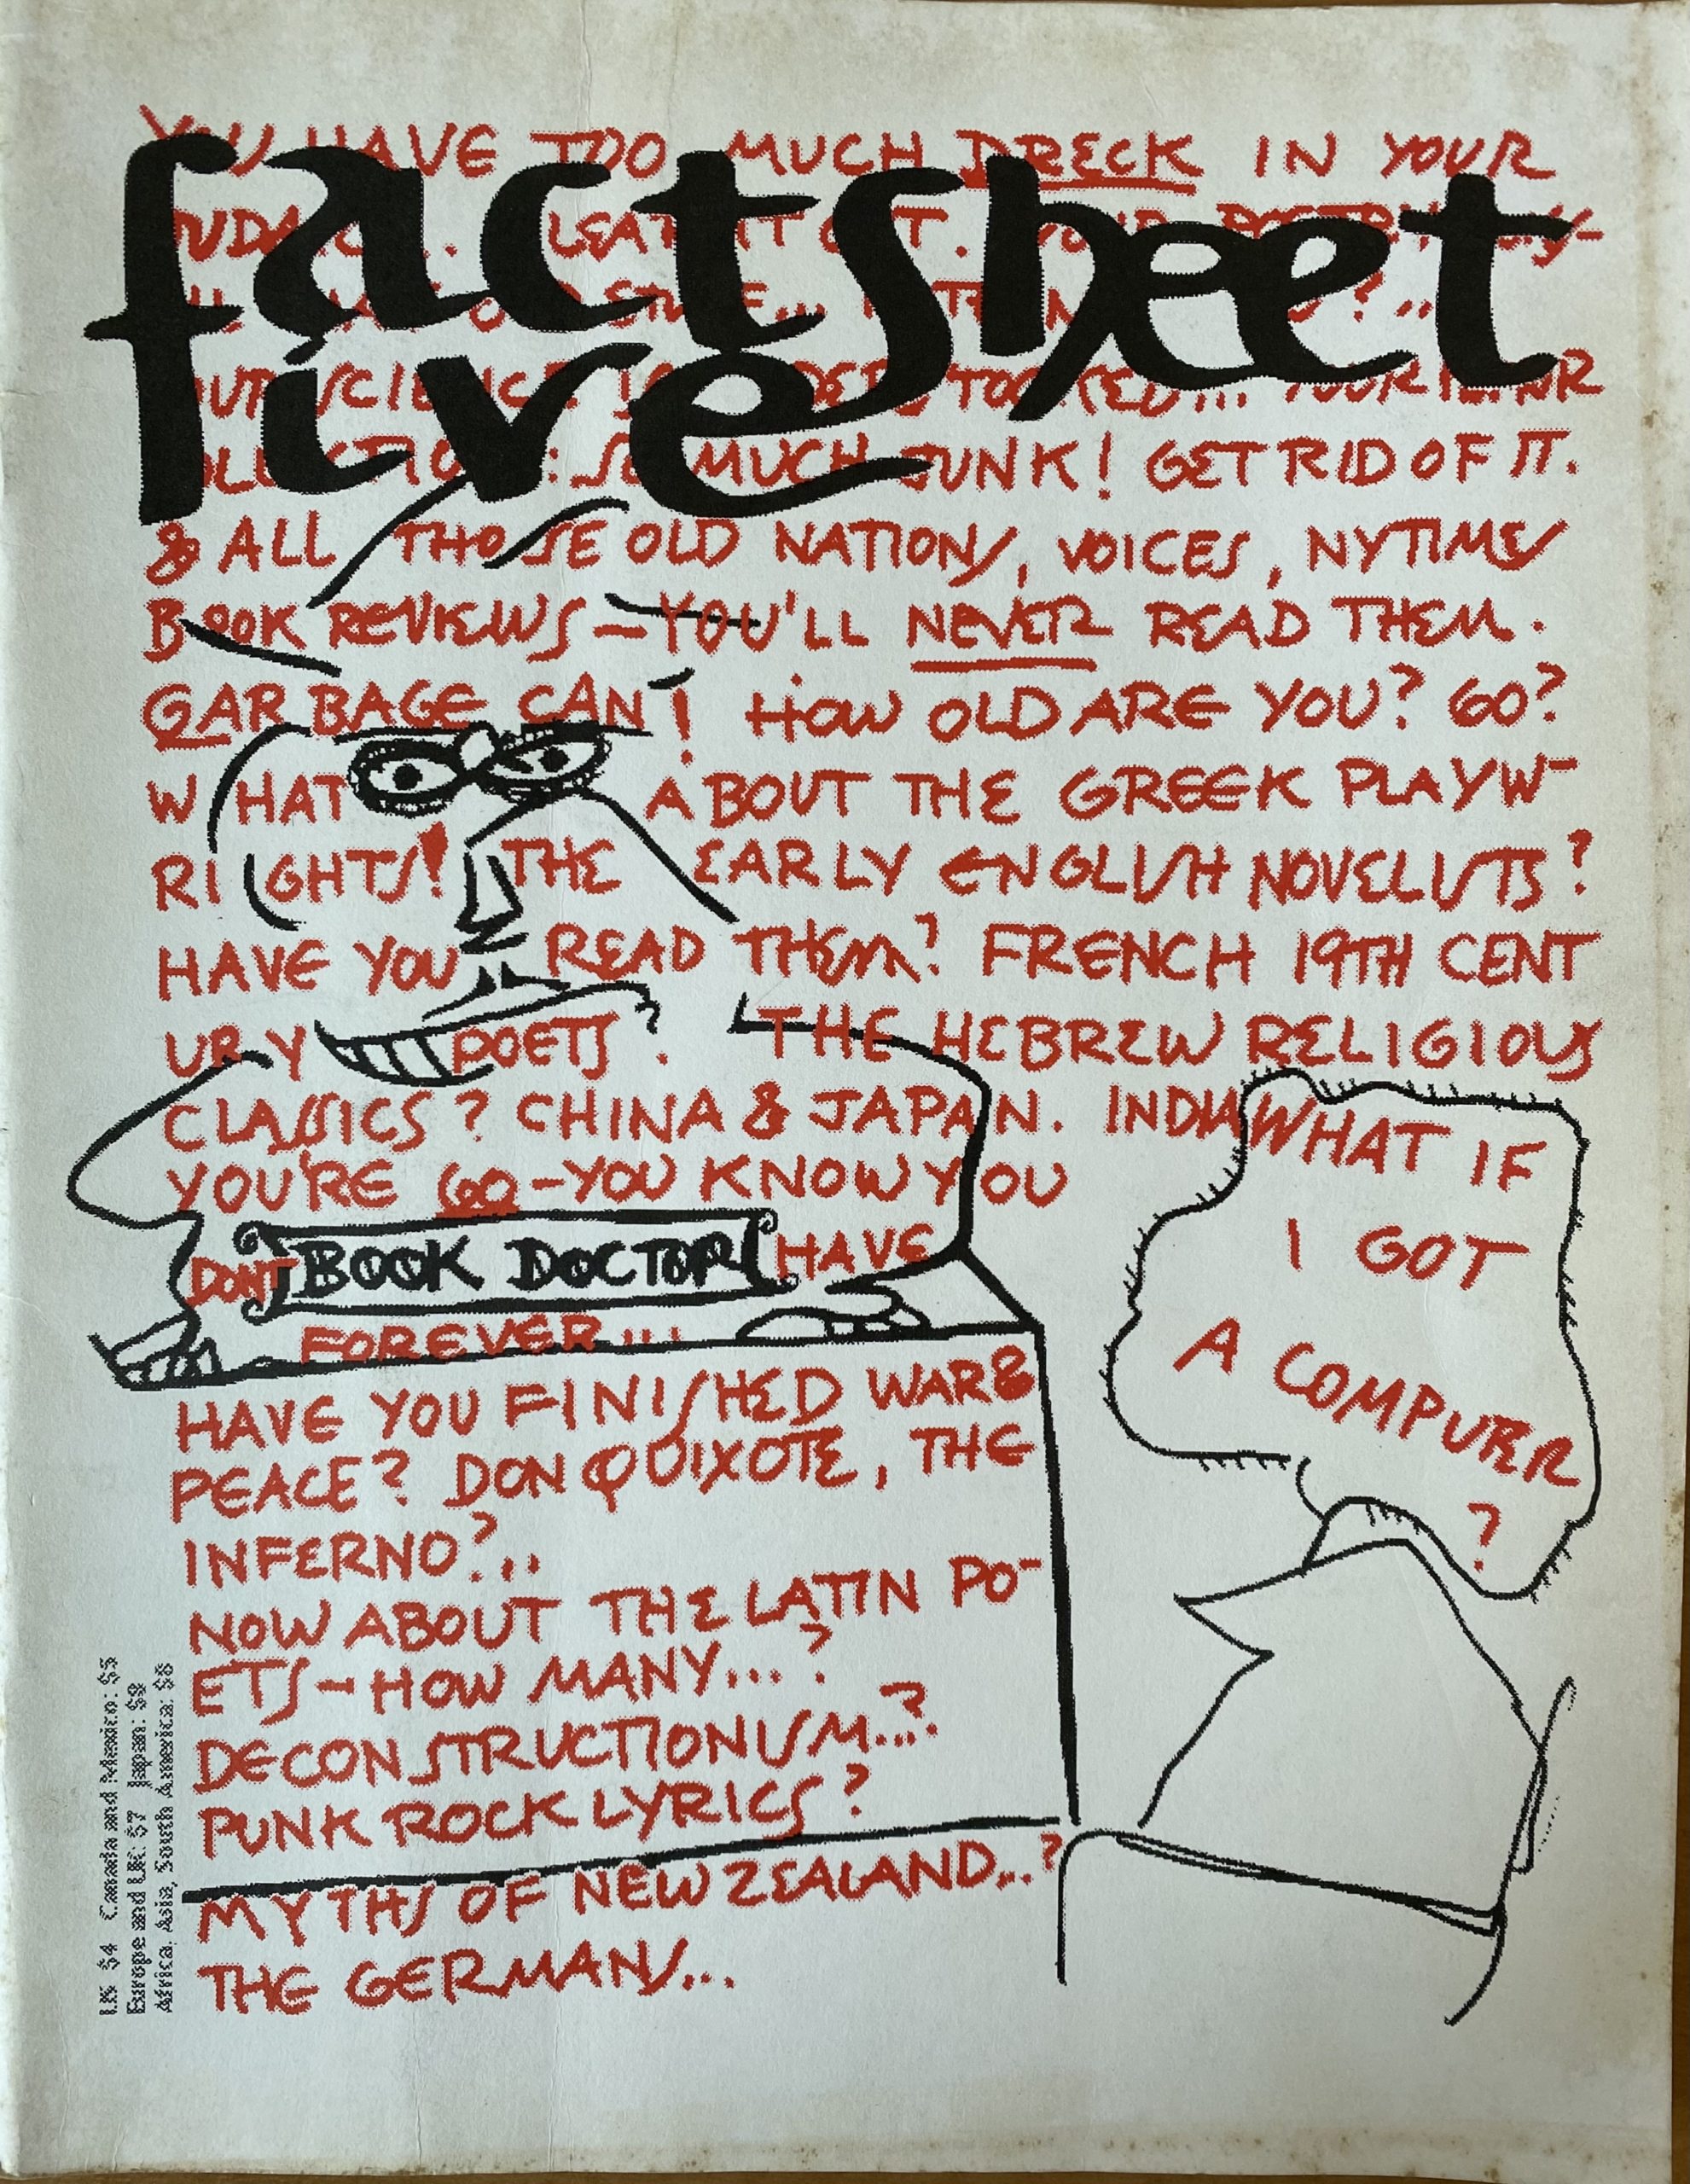 factsheet
five
YOU HAVE TOO MUCH DRECK IN YOUR
JUDAICA.. CLEAT IT OUT. YOUR POETRY
?..
SCIENCE IS
COLLECTION: SO MUCH JUNK! GET RID OF IT.
& ALL THOSE OLD NATIONS, VOICES, NYTIMES
BOOK REVIEWS – YOU'LL NEVER READ THEM.
GARBAGE CAN! HOW OLD ARE YOU? 60?
WHAT ABOUT THE GREEK PLAYW-
RIGHTS! THE EARLY ENGLISH NOVELISTS?
HAVE YOU READ THEM? FRENCH 19TH CENT
URY POETS? THE HEBREW RELIGIOUS
CLASSICS? CHINA & JAPAN. INDIA
YOU'RE 60 – YOU KNOW YOU
DONT HAVE
BOOK DOCTOR
FOREVER...
HAVE YOU FINISHED WAR &
PEACE? DON QUIXOTE, THE
INFERNO?..
NOW ABOUT THE LATIN PO-
ETS – HOW MANY...?
DECONSTRUCTIONISM...?
PUNK ROCK LYRICS?
MYTHS OF NEW ZEALAND...?
THE GERMANS...
WHAT IF
I GOT
A COMPUTER
?
US $4 Canada and Mexico: $5
Europe and UK: $7 Japan: $9
Africa, Asia, South America: $8